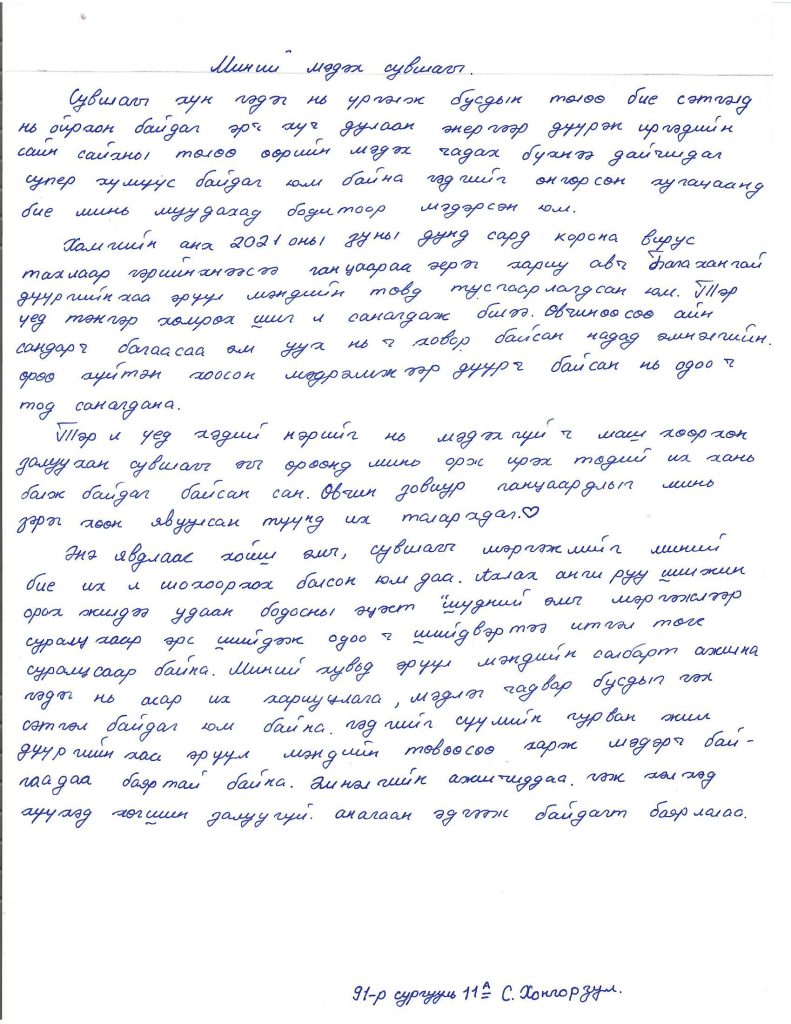 Миний мэдэх сувилагч.
Сувилагч хүн гэдэг нь үргэлж бусдын төлөө бие сэтгэлд
нь ойрхон байдаг эрч хүч дулаан энергээр дүүрэн иргэдийн
сайн сайхны төлөө өөрийн мэдэх чадах бүхнээ дайчилдаг
супер хүмүүс байдаг юм байна гэдгийг өнгөрсөн хугацаанд
бие минь муудахад бодитоор мэдэрсэн юм.
Хамгийн анх 2021 оны зуны дунд сард корона вирус
тахлаар гэрийнхнээсээ ганцаараа эерэг хариу авч Багахангай
дүүргийнхээ эрүүл мэндийн төвд тусгаарлагдсан юм. Тэр
үед тэнгэр хөмрөх шиг л санагдаж билээ. Өвчнөөсөө айн
сандарч багаасаа эм уух нь ч ховор байсан надад эмнэлгийн.
өрөө хүйтэн хоосон мэдрэмжээр дүүрч байсан нь одоо ч
тод санагдана.
Тэр л үед хэдий нэрийг нь мэдэхгүй ч маш хөөрхөн
залуухан сувилагч эгч өрөөнд минь орж ирэх төдий их хань
болж байдаг байсан сан. Өвчин зовиур ганцаардлыг минь
зэрэг хөөн явуулсан түүнд их талархдаг.♡
Энэ явдлаас хойш эмч, сувилагч мэргэжлийг миний
бие их л шохоорхох болсон юм даа. Ахлах анги руу шилжин
орох жилдээ удаан бодосны эцэст "шүдний эмч мэргэжлээр
суралцахаар эрс шийдэж одоо ч шийдвэртээ итгэл төгс
суралцсаар байна. Миний хувьд эрүүл мэндийн салбарт ажилна
гэдэг нь асар их хариуцлага, мэдлэг чадвар бусдыг гэх
сэтгэл байдаг юм байна. гэдгийг сүүлийн гурван жил
дүүргийнхээ эрүүл мэндийн төвөөсөө харж мэдэрч бай-
гаадаа баяртай байна. Эмнэлгийн ажилчиддаа. гэж хэлхэд
хүүхэд хөгшин залуугүй. анагаан эдгээж байдагт баярлалаа.
91-р сургууль 11А С. Хонгорзул.